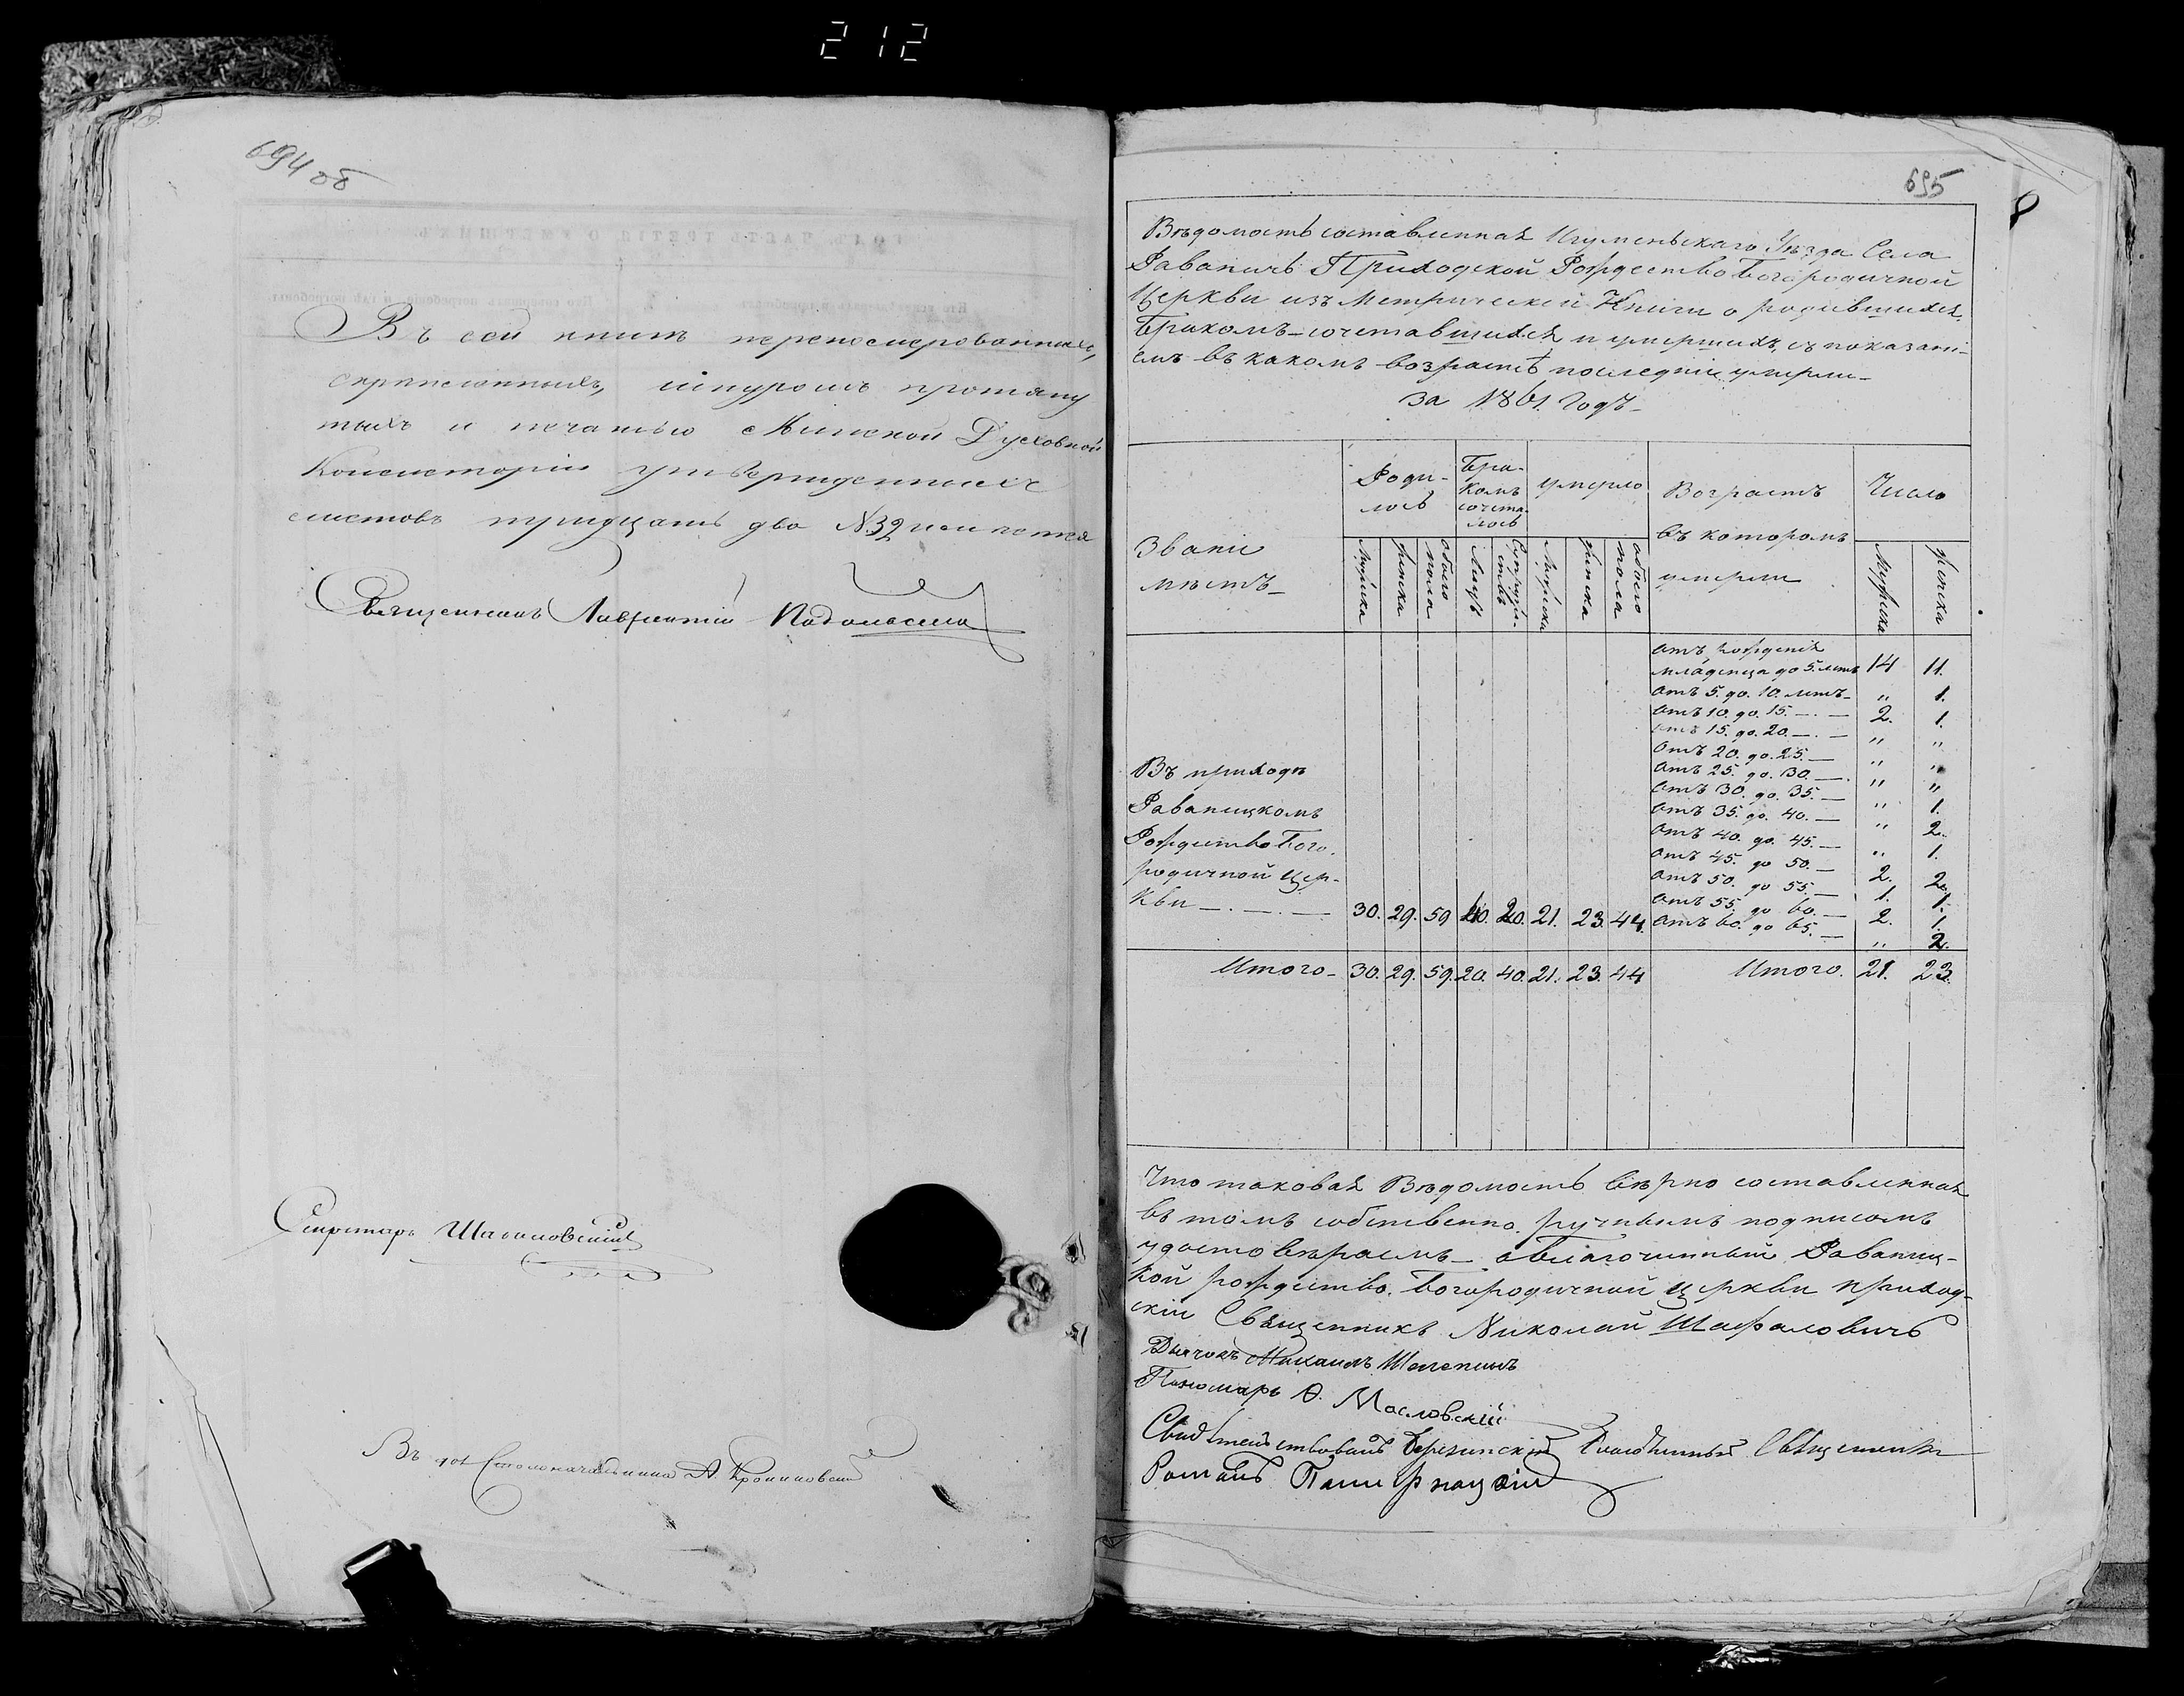 212
694 об
Въ сей книгѣ перенумерованныхъ,
скрѣпленныхъ, шнуромъ протяну
тыхъ и печатью Минской Духовной
Консисторіи утвержденныхъ
листовъ тридцать два №32
Священникъ Лаврентій
Секретарь
Въ дол Столоначальника А.
695
Вѣдомость составленная Игуменьскаго Уѣзда Села
Раваничь Приходской Рождество Богородичной
Церкви изъ Метрической Книги о родившихся,
Бракомъ-сочетавшихся и умершихъ, съ показані-
емъ въ какомъ возрастѣ послѣдніе умерли-
За 1861. Годъ-
Званіе
мѣстъ-
Роди-
лось
Бра-
комъ
сочета-
лось
умерло
Возрастъ
въ которомъ
умерли
Число
Мужска
женска
обоего пола
Лицъ
Супруж-
ствъ
Мужска
женска
обоего пола
Мужска
женска
отъ рожденія
младенца до 5. летъ 14 11.
отъ 5. до 10. летъ- " 1.
отъ 10. до 15. — . — 2. 1.
отъ 15. до 20. — . — " "
отъ 20. до 25. — " "
отъ 25. до 30. — . " "
отъ 30. до 35. — " 1.
отъ 35. до 40. — " 2.
отъ 40. до 45. — " 1.
отъ 45. до 50. — 2. 2.
отъ 50. до 55. — 1. 1.
отъ 55. до 60. — 2. 1.
отъ 60. до 65. — " 2.
Въ приходѣ
Раваницкомъ
Рождество Бого-
родичной Цер-
кви — . — . — 30. 29. 59 40. 20. 21. 23. 44.
Итого- 30. 29. 59. 20. 40. 21. 23. 44 Итого. 21. 23.
Что таковая Вѣдомость вѣрно составленная
въ томъ собственно ручнымъ подписомъ
удостовѣраемъ- Благочинный Раваниц-
кой рождество. Богородичной Церкви приход-
скій Священникъ Николай Шафаловичъ
Дьячокъ Михаилъ
Пономарь Ѳ. Масловскій
Свидѣтельствовалъ Березинскій Благочинный Священникъ
Романъ